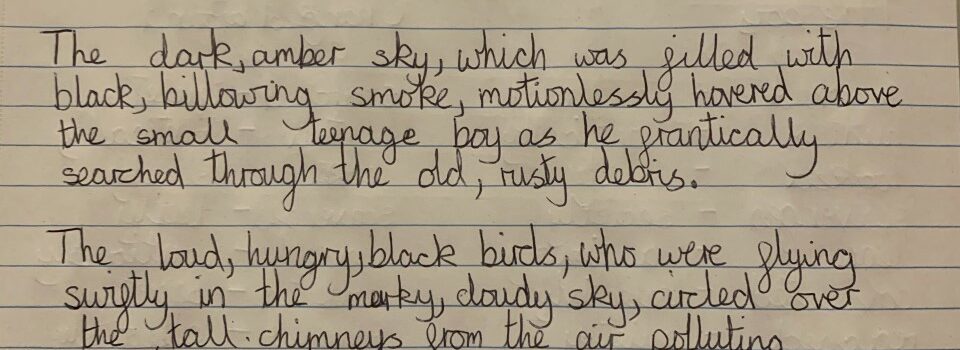 The dark, amber sky, which was filled with
black, billowing smoke, motionlessly hovered above
the small teenage boy as he frantically
searched through the old, rusty debris.
The loud, hungry, black birds, who were flying
swiftly in the merky, cloudy sky, circled over
the tall chimneys from the air polluting